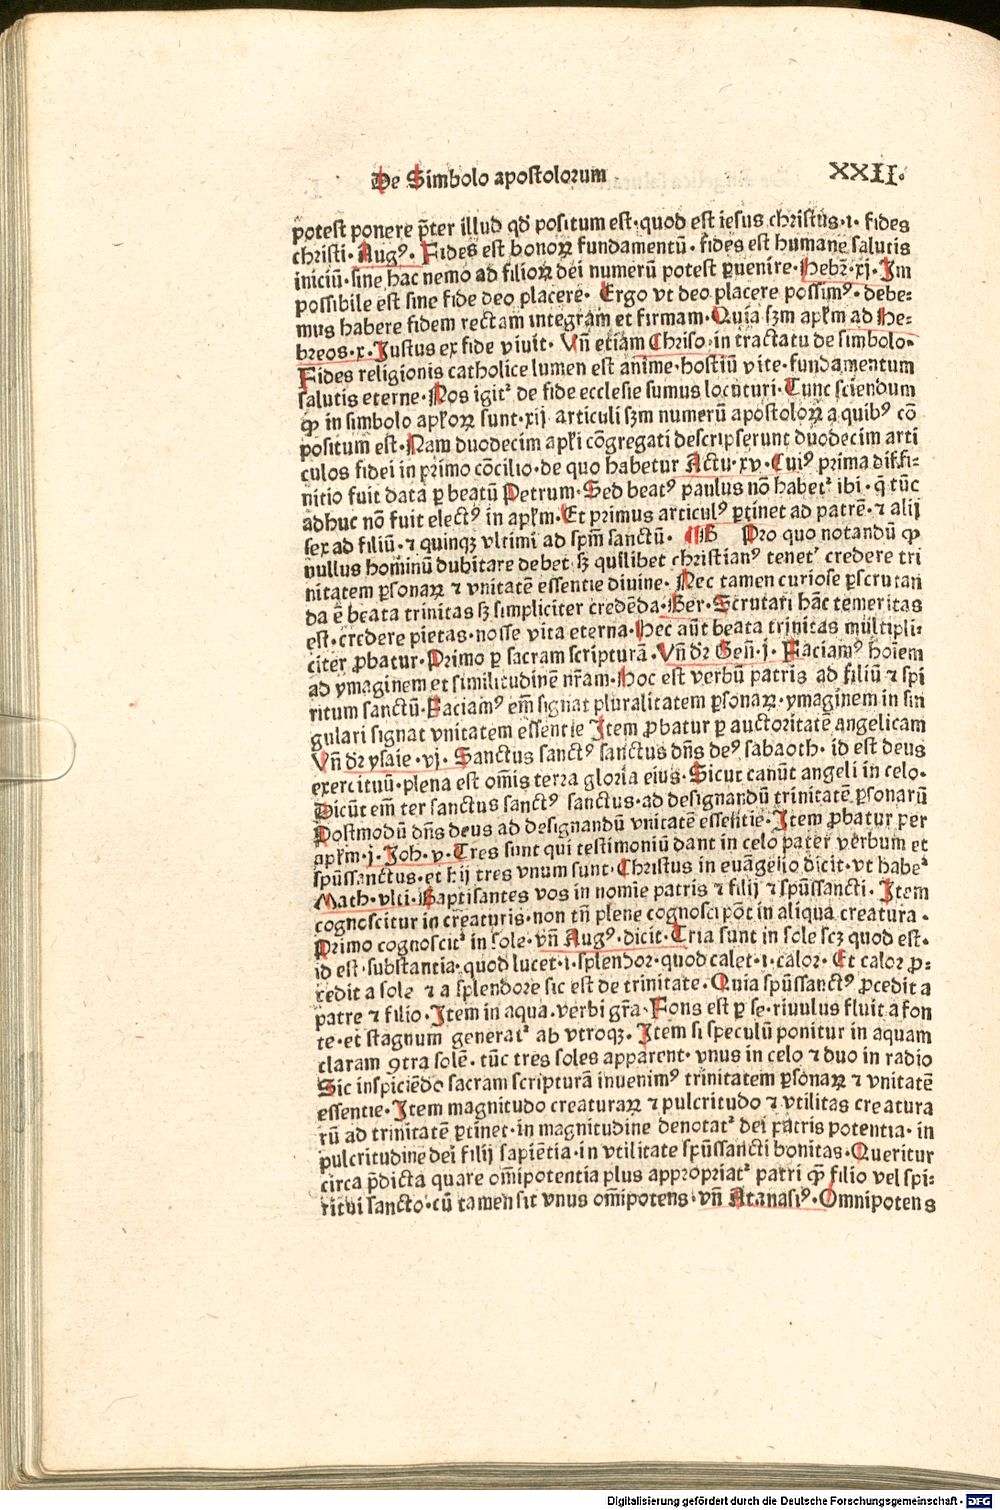 De Simbolo apostolorum XXII.
potest ponere p̄ter illud qd̄ positum est·quod est iesus christus·i· fides
christi· Augꝰ· Fides est bonoꝝ fundamentū· fides est humane salutis
iniciū·sine hac nemo ad filioꝝ dei numerū potest ꝑuenire·Hebr̄·xj·Im
possibile est sine fide deo placere· Ergo vt deo placere possimꝰ·debe⸗
mus habere fidem rectam integram et firmam·Quia ſꝫm apl̄m ad He⸗
breos·x·Iustus ex fide viuit· Vn̄ etiam Chriso·in tractatu de simbolo·
Fides religionis catholice lumen est anime·hostiū vite·fundamentum
salutis eterne·Nos igitᷣ de fide ecclesie sumus locuturi·Tunc sciendum
ꝙ in simbolo apl̄oꝝ sunt·xij articuli ſꝫm numerū apostoloꝝ a quibꝰ cō
positum est·Nam duodecim apl̄i cōgregati descripserunt duodecim arti
culos fidei in primo cōcilio·de quo habetur Actu·xv·Cuiꝰ prima diffi⸗
nitio fuit data ꝑ beatū Petrum·Sed beatꝰ paulus nō habetᷣ ibi·q̄ tūc
adhuc nō fuit electꝰ in apl̄m·Et primus articulꝰ ꝑtinet ad patrē·⁊ alij
sex ad filiū·⁊ quinqꝫ vltimi ad spm̄ sanctū· ¶B Pro quo notandū ꝙ
nullus hominū dubitare debet sꝫ quilibet christianꝰ tenetᷣ credere tri
nitatem ꝑsonaꝝ ⁊ vnitatē essentie diuine·Nec tamen curiose ꝑscrutan
da ē beata trinitas sꝫ simpliciter credēda·Ber·Scrutari hāc temeritas
est·credere pietas·nosse vita eterna·Hec aūt beata trinitas multipli⸗
citer ꝓbatur·Primo ꝑ sacram scripturā·Vn̄ dr̄ Gen̄·j·Faciamꝰ hoīem
ad ymaginem et similitudinē nr̄am·Hoc est verbū patris ad filiū ⁊ spi
ritum sanctū·Faciamꝰ em̄ signat pluralitatem ꝑsonaꝝ·ymaginem in sin
gulari signat vnitatem essentie Item ꝓbatur ꝑ auctoritatē angelicam
Vn̄ dr̄ ysaie·vj·Sanctus sanctꝰ sanctus dn̄s deꝰ sabaoth·id est deus
exercituū·plena est om̄is terra gloria eius·Sicut canūt angeli in celo·
Dicūt em̄ ter sanctus sanctꝰ sanctus·ad designandū trinitatē ꝑsonarū
Postmodū dn̄s deus ad designandū vnitatē essentie·Item ꝓbatur per
apl̄m·j·Joh·v·Tres sunt qui testimoniū dant in celo pater verbum et
spūssanctus·et hij tres vnum sunt·Christus in euāgelio dicit·vt habeᷣ
Math·vlti·Baptisantes vos in nomīe patris ⁊ filij ⁊ spūssancti·Item
cognoscitur in creaturis·non tn̄ plene cognosci pōt in aliqua creatura·
Primo cognoscitᷣ in sole·vn̄ Augꝰ·dicit·Tria sunt in sole scꝫ quod est·
id est·substantia·quod lucet·i·splendor·quod calet·i·calor·Et calor ꝓ⸗
cedit a sole ⁊ a splendore sic est de trinitate·Quia spūssanctꝰ ꝓcedit a
patre ⁊ filio·Item in aqua·verbi gr̄a·Fons est ꝑ se·riuulus fluit a fon
te·et stagnum generatᷣ ab vtroqꝫ·Item si speculū ponitur in aquam
claram ꝯtra solē·tūc tres soles apparent·vnus in celo ⁊ duo in radio
Sic inspiciēdo sacram scripturā inuenimꝰ trinitatem ꝑsonaꝝ ⁊ vnitatē
essentie·Item magnitudo creaturaꝝ ⁊ pulcritudo ⁊ vtilitas creatura
rū ad trinitatē ꝑtinet·in magnitudine denotatᷣ dei patris potentia·in
pulcritudine dei filij sapiētia·in vtilitate spūssancti bonitas·Queritur
circa p̄dicta quare om̄ipotentia plus appropriatᷣ patri ꝙ̄ filio vel spi⸗
ritui sancto·cū tamen sit vnus om̄ipotens·vn̄ Atanasiꝰ·Omnipotens
Digitalisierung gefördert durch die Deutsche Forschungsgemeinschaft - DFG